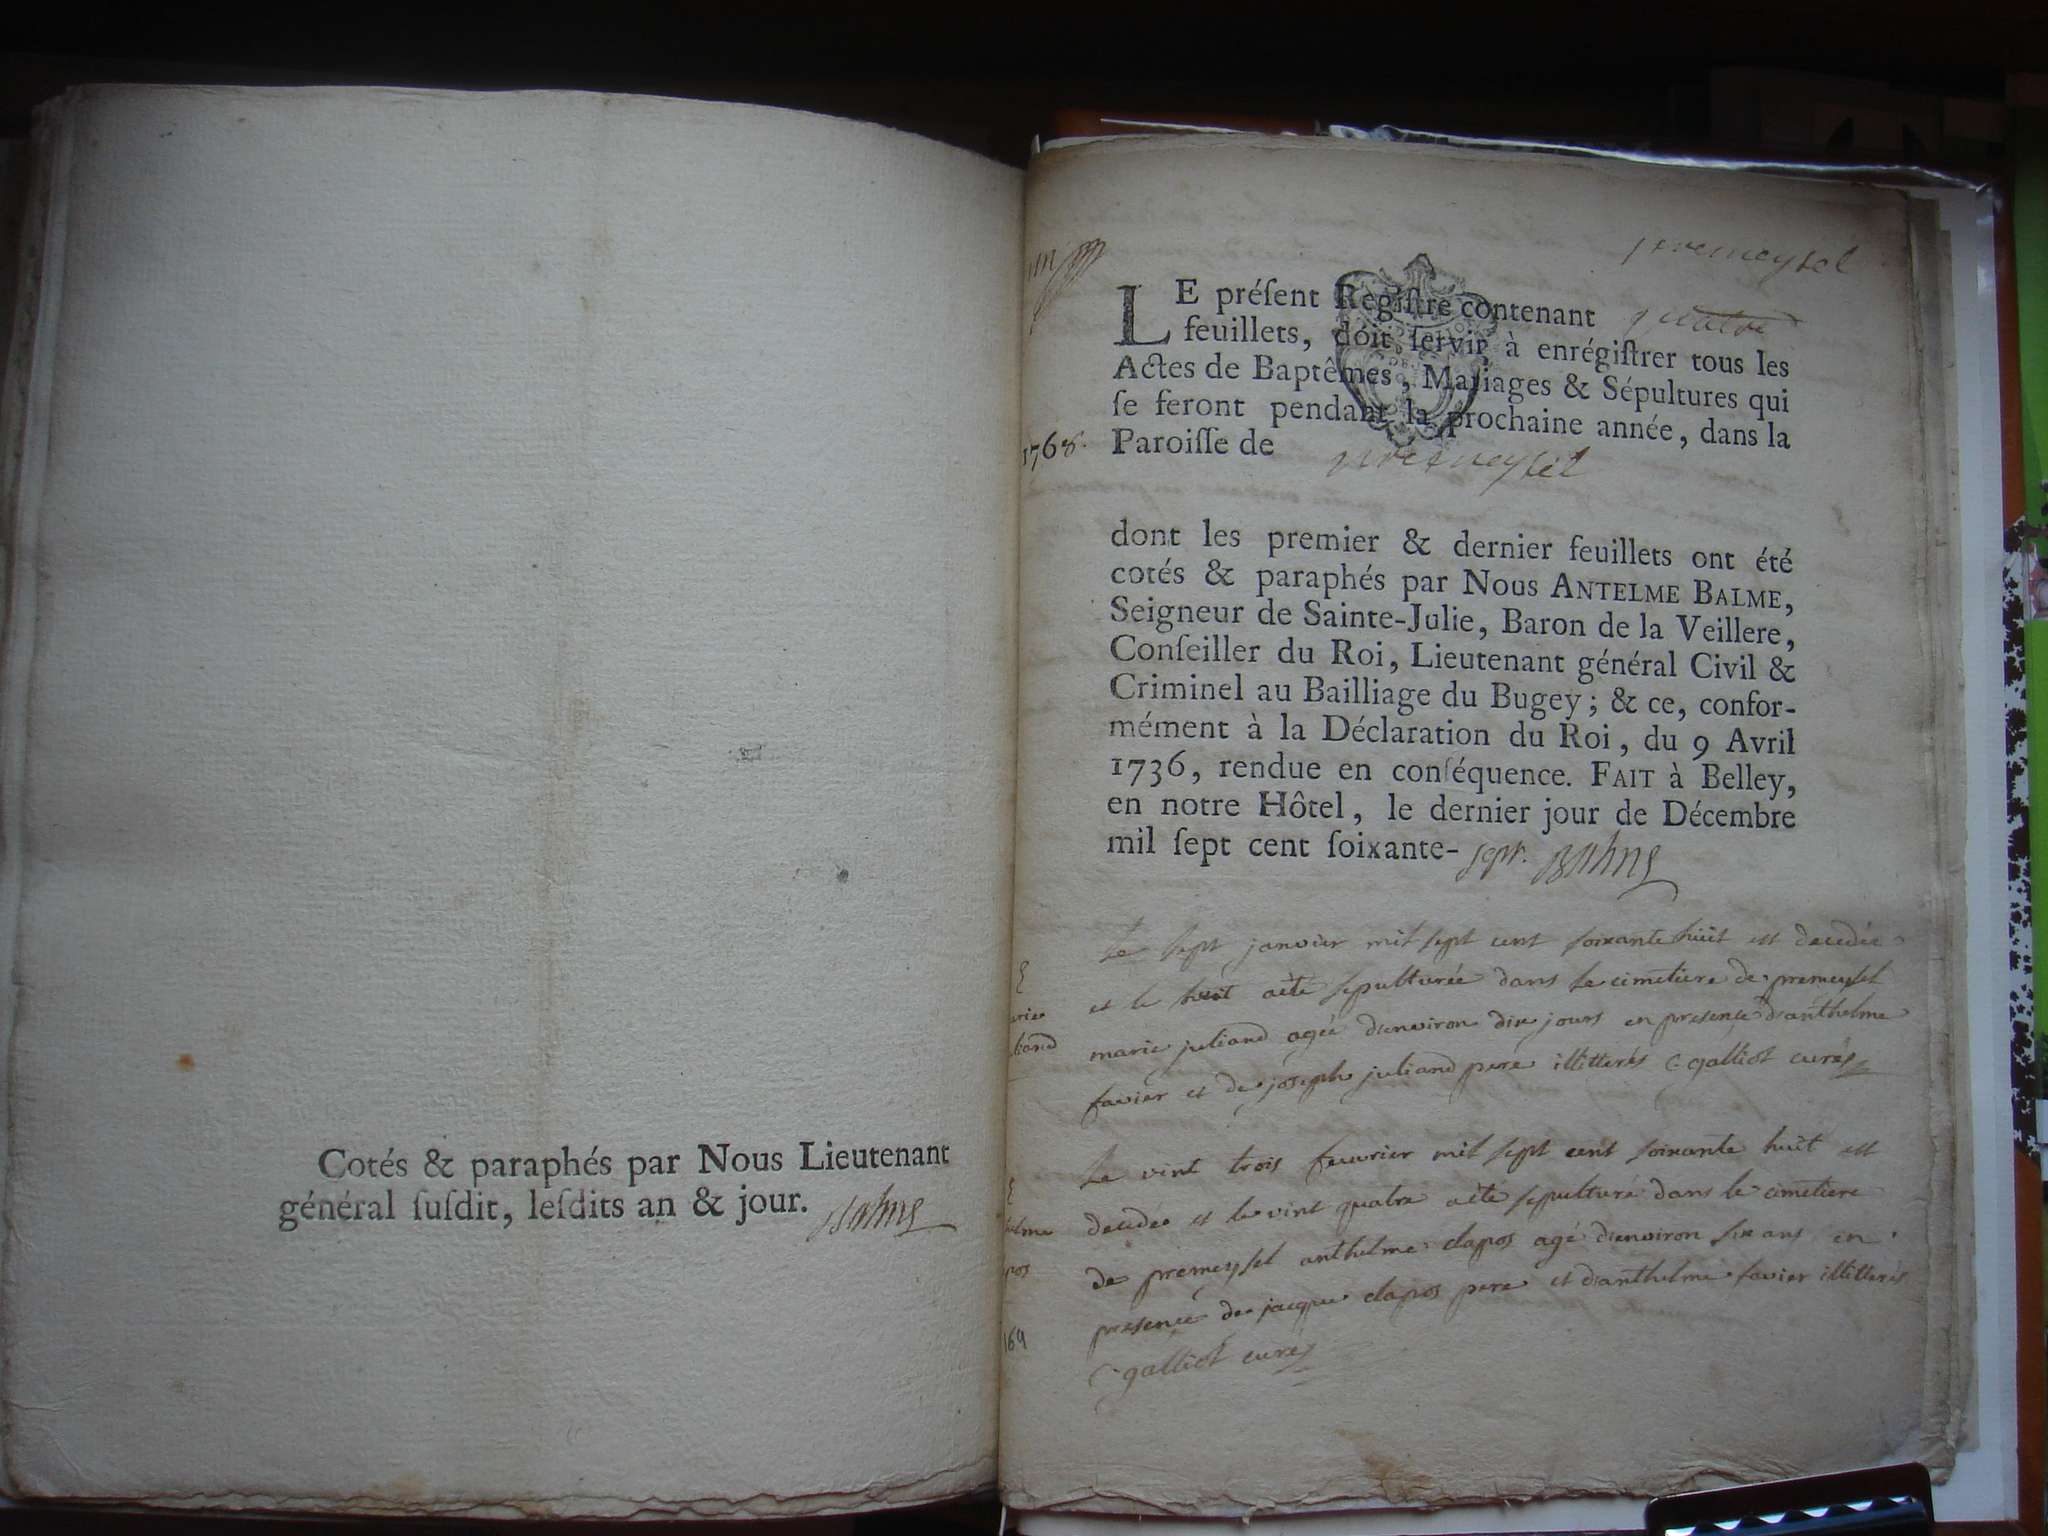 Cotés & paraphés par Nous Lieutenant
général ſuſdit, leſdits an & jour. Balme
premeysel
LE préſent Regiſtre contenant quatre
feuillets, doit ſervir à enrégiſtrer tous les
Actes de Baptêmes, Mariages & Sépultures qui
ſe feront pendant la prochaine année, dans la
1768. Paroiſſe de premeysel
dont les premier & dernier feuillets ont été
cotés & paraphés par Nous ANTELME BALME,
Seigneur de Sainte-Julie, Baron de la Veillere,
Conſeiller du Roi, Lieutenant général Civil &
Criminel au Bailliage du Bugey; & ce, confor-
mément à la Déclaration du Roi, du 9 Avril
1736, rendue en conſéquence. FAIT à Belley,
en notre Hôtel, le dernier jour de Décembre
mil ſept cent ſoixante- sept. Balme
Le sept janvier mil sept cent soixante huit est decedée
et le huit aété sepulturée dans le cimetiere de premeysel
marie juliand agée d'environ dix jours en presence d'anthelme
favier et de joseph juliand pere illitterés C galliot curé
Le vint trois fevrier mil sept cent soixante huit est
decedé et le vint quatre aété sepulturé dans le cimetiere
de premeysel anthelme clapos agé d'environ six ans en
presence de jacque clapos pere et d'anthelme favier illitterés
169
C galliot curé